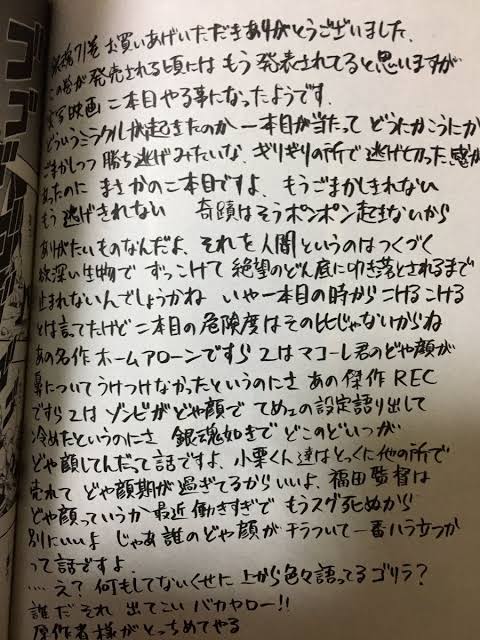 銀魂71巻 お買いあげいただきありがとうございました。
この巻が発売される頃には もう発表されてると思いますが
実写映画 二本目やる事になったようです。
どういうミラクルが起きたのか 一本目が当たって どうにかこうにか
ごまかしつつ 勝ち逃げみたいな、ギリギリの所で 逃げ切った感が
あったのに まさかの二本目ですよ、もうごまかしきれない
もう逃げきれない 奇蹟はそうポンポン起きないから
ありがたいものなんだよ、それを人間というのはつくづく
欲深い生物で ずっこけて 絶望のどん底に叩き落とされるまで
止まれないんでしょうかね いや一本目の時から こけるこける
とは言ってたけど 二本目の危険度はその比じゃないからね
あの名作 ホームアローンですら 2は マコーレ君のどや顔が
鼻についてうけつけなかったというのにさ あの傑作 REC
ですら 2は ゾンビがどや顔で てめェの設定語り出して
冷めたというのにさ 銀魂如きで どこのどいつが
どや顔してんだって話ですよ、小栗くん達はとっくに他の所で
売れて どや顔期が過ぎてるからいい、福田監督は
どや顔っていうか 最近働きすぎで もうスグ死ぬから
別にいいよ じゃあ誰のどや顔が チラついて一番ハラ立つか
って話ですよ、
‥‥え? 何もしてないくせに 上から色々語ってるゴリラ?
誰だそれ 出てこい バカヤロー!!
原作者様がとっちめてやる
ゴゴゴ